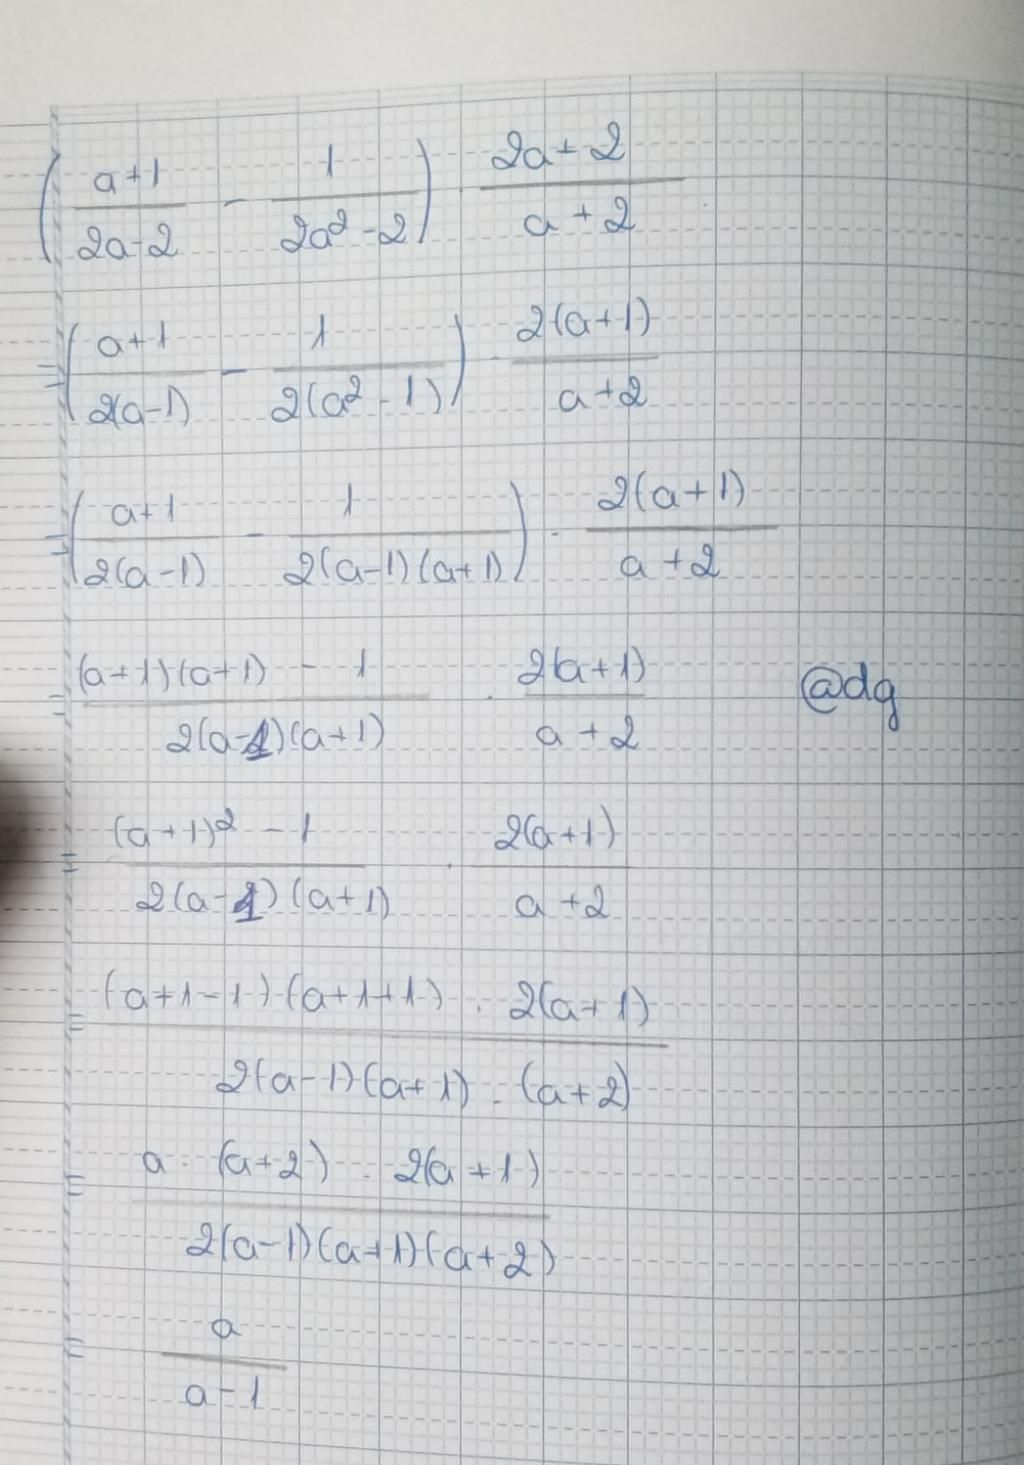 (a+1/2a-2 - 1/2a²-2) · 2a+2/a+2
=(a+1/2(a-1) - 1/2(a²-1)) · 2(a+1)/a+2
=(a+1/2(a-1) - 1/2(a-1)(a+1)) · 2(a+1)/a+2
= (a+1)(a+1) - 1/2(a-1)(a+1) · 2(a+1)/a+2
@dg
= (a+1)² - 1/2(a-1)(a+1) · 2(a+1)/a+2
= (a+1-1)·(a+1+1) · 2(a+1)/2(a-1)(a+1) · (a+2)
= a · (a+2) · 2(a+1)/2(a-1)(a+1)(a+2)
= a/a-1